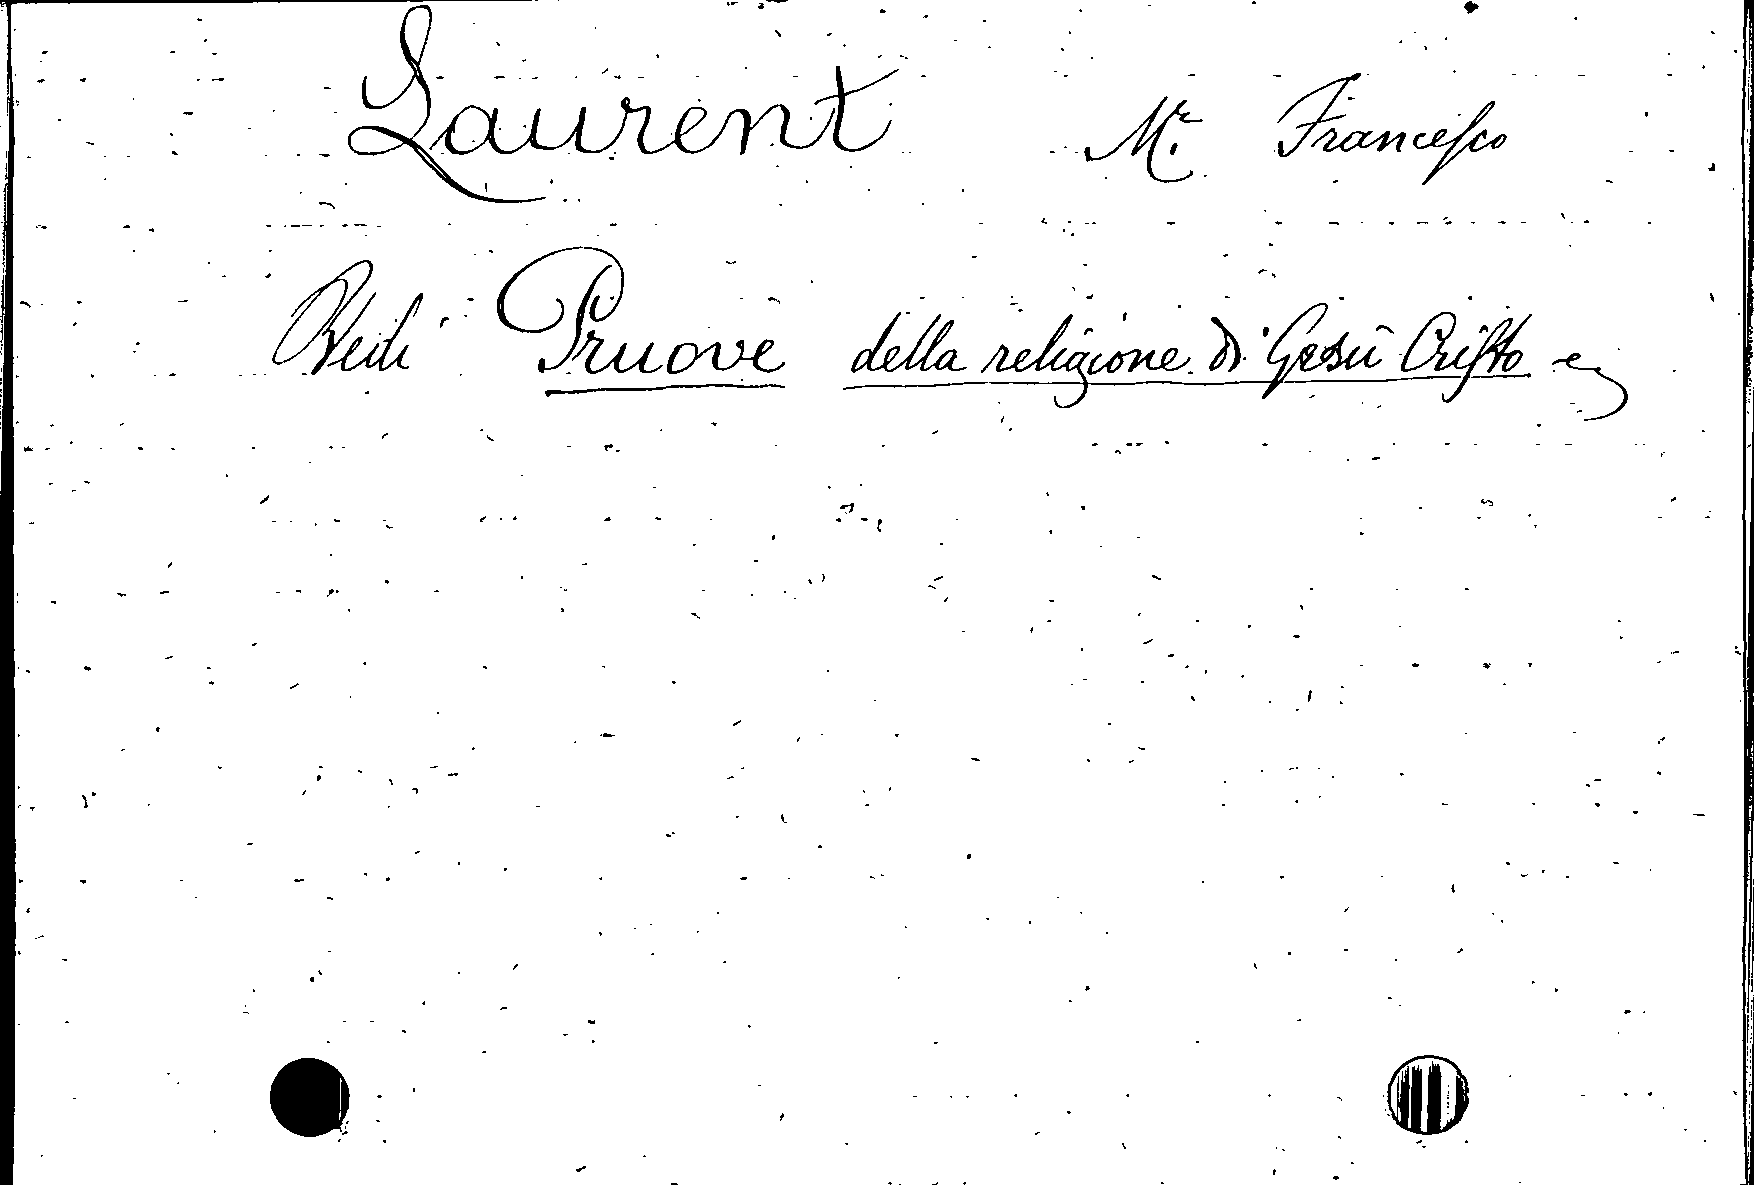 Laurent Mr. Francesco
Vedi Pruove della religione di Gesù Cristo e